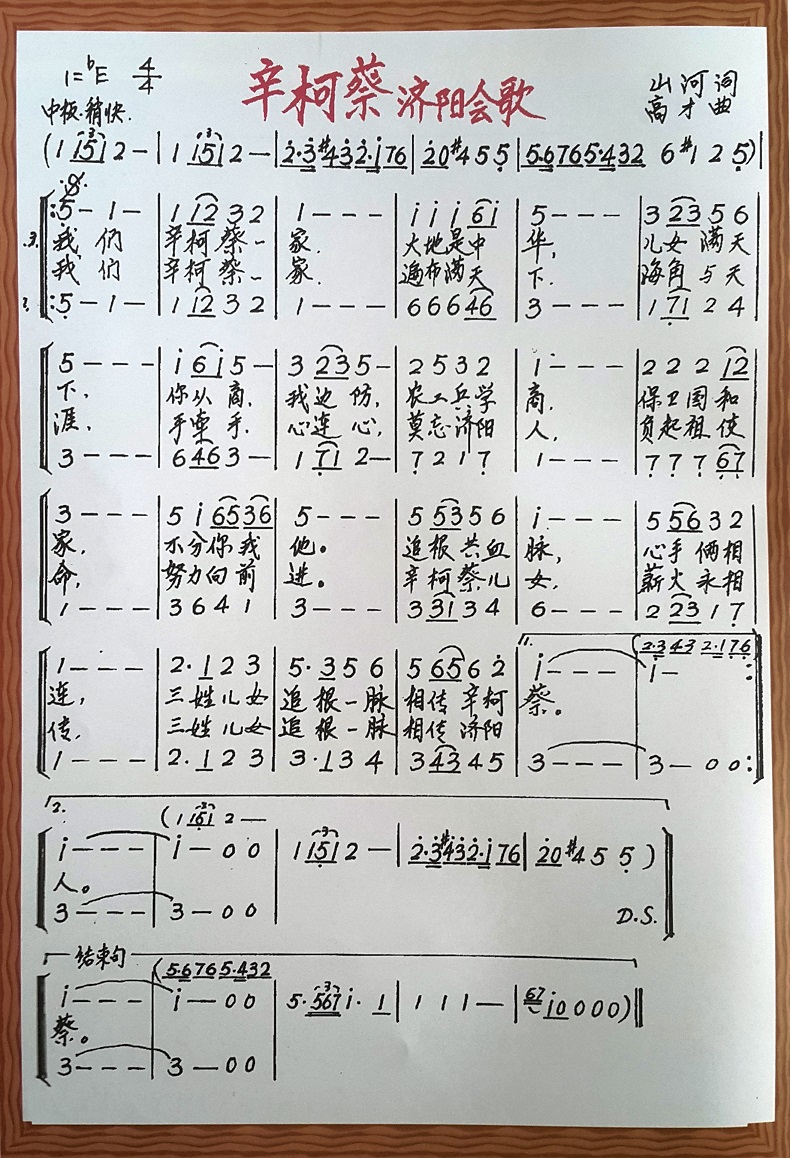 1=♭E 4/4
辛柯蔡济阳会歌
山河词
高才曲
中板·稍快.
(1 151 2 — | 1 151 2 — | 2·3#432·176 | 20#4 5 5 | 5·6765·432 6 #1 2 5)|
5 — 1 — | 1 12 3 2 | 1 — — — | i i i 6i | 5 — — — | 3 23 5 6
1.3. 我们 辛柯蔡一 家. 大地是中 华, 儿女满天
我们 辛柯蔡一 家. 遍布满天 下. 海角与天
2. :5 — 1 — | 1 12 3 2 | 1 — — — | 6 6 6 46 | 3 — — — | 1 71 2 4
5 — — — | i 6i 5 — | 3 23 5 — | 2 5 3 2 | 1 — — — | 2 2 2 12
下, 你从商, 我边防, 农工兵学 商. 保卫国和
涯, 手牵手. 心连心, 莫忘济阳 人, 负起祖使
3 — — — | 6 46 3 — | 1 71 2 — | 7 2 1 7 | 1 — — — | 7 7 7 67
3 — — — | 5 i 65 36 | 5 — — — | 5 53 5 6 | i — — — | 5 56 3 2
家, 不分你我 他。 追根共血 脉, 心手俩相
命, 努力向前 进。 辛柯蔡儿 女, 薪火永相
1 — — — | 3 6 4 1 | 3 — — — | 3 31 3 4 | 6 — — — | 2 23 1 7
1. (2·3 43 2·1 76)
1 — — — | 2· 1 2 3 | 5· 3 5 6 | 5 65 6 2 | i — — — | i —
连, 三姓儿女 追根一脉 相传辛柯 蔡。
传, 三姓儿女 追根一脉 相传济阳
1 — — — | 2· 1 2 3 | 3· 1 3 4 | 3 43 4 5 | 3 — — — | 3 — 0 0 :
2.
(1 151 2 —
i — — — | i — 0 0 | 1 151 2 — | 2·3#432·176 | 20 #4 5 5 )
人。
3 — — — | 3 — 0 0
D.S.
结束句
(5·6765·432
i — — — | i — 0 0 | 5· 567 i· 1 | 1 1 1 — | 67 i0 0 0 0)
蔡。
3 — — — | 3 — 0 0